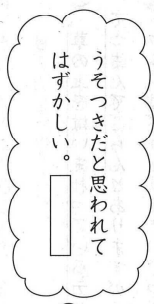 うそつきだと思われて
はずかしい。